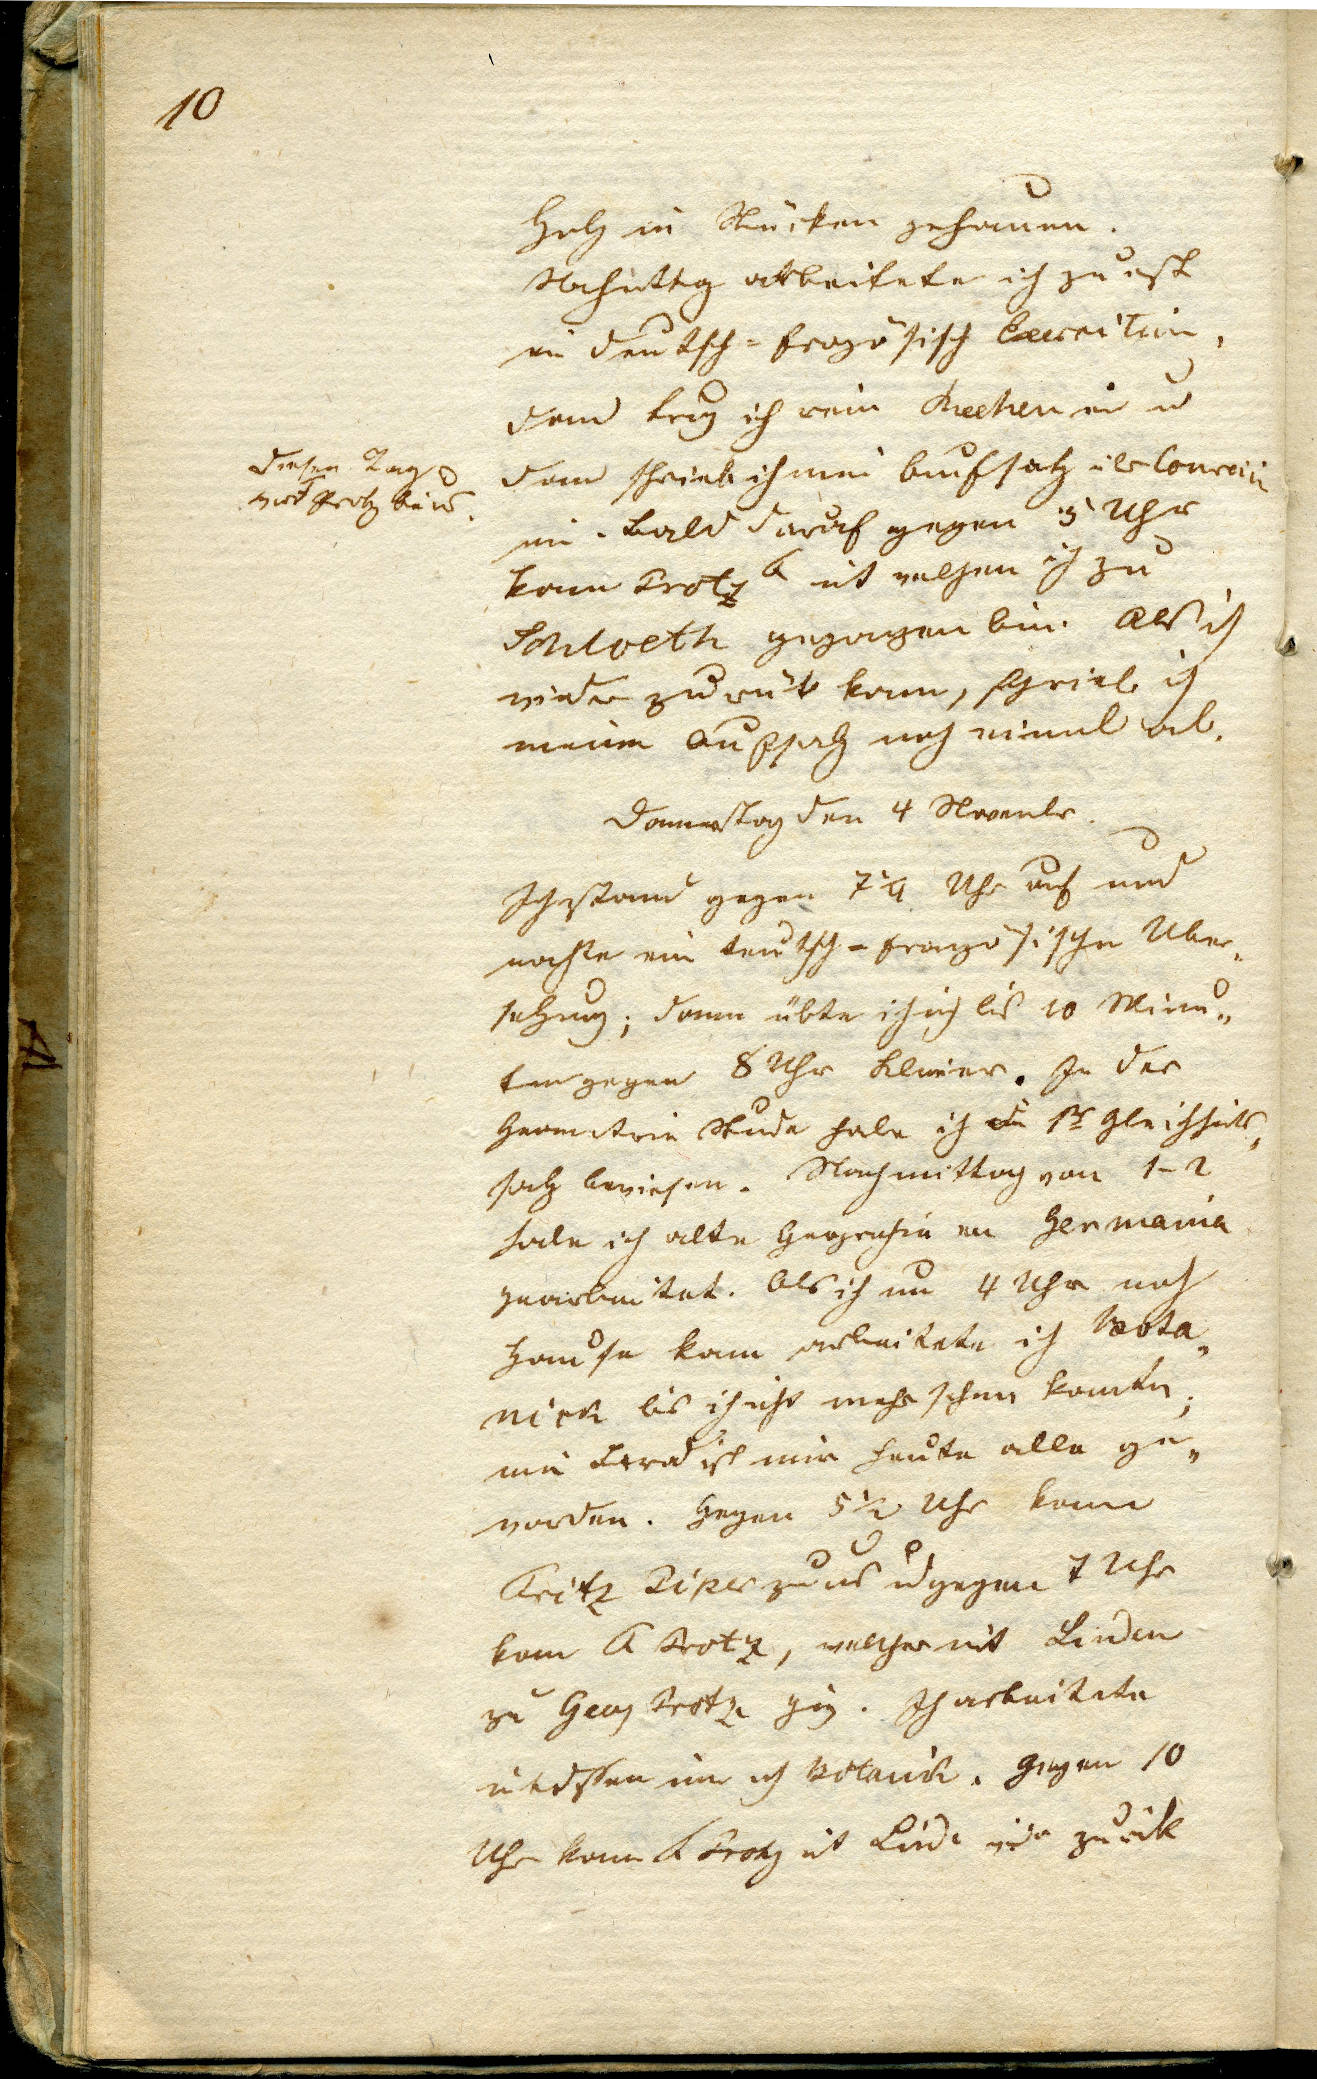 10
Holz in Stücken gehauen.
Nachmittag arbeitete ich zuerst
ein deutsch-französisch Exercitium,
dann trug ich rein Rechnen ein u
Diesen Tag
wird Protz
dann schrieb ich mein Aufsatz als Concein
ein. Bald darauf gegen 5 Uhr
kam Protz A mit welchen ich zu
Schloeth gegangen bin. Als ich
wieder zurück kam, schrieb ich
meinen Aufsatz noch einmal ab.
Donnerstag den 4 Novembr.
Ich stand gegen 7¼ Uhr auf und
machte ein teutsch-französische Über„
setzung; dann übte ich mich bis 10 Minu„
ten gegen 8 Uhr Klavier. In der
Geometrie Stunde habe ich die 1te Gleichheits„
satz bewiesen. Nachmittag von 1-2
habe ich alte Geografie von Germania
gearbeitet. Als ich um 4 Uhr nach
Hause kam arbeitete ich Bota„
nick bis ich nicht mehr sehen konnte;
ist mir heute alle ge„
worden. Gegen 5½ Uhr kam
Fritz Piper zu uns u gegen 7 Uhr
kam A Protz, welcher mit Linden
zu Georg Protz ging. Ich arbeitete
unterdessen immer noch Botanik. Gegen 10
Uhr kam A Protz mit Linde wieder zurück